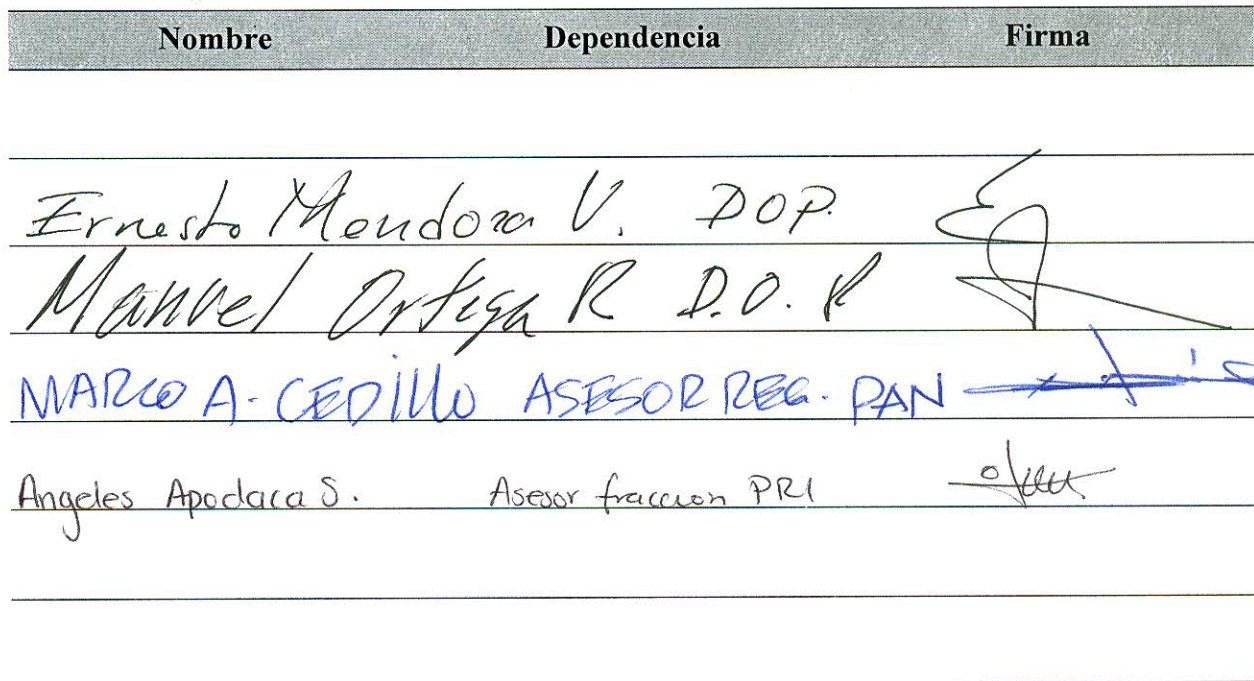 Nombre Dependencia Firma
Ernesto Mendoza V. DOP.
Manuel Ortega R D.O.P
MARCO A. CEDILLO ASESOR REG. PAN
Angeles Apodaca S. Asesor fraccion PRI